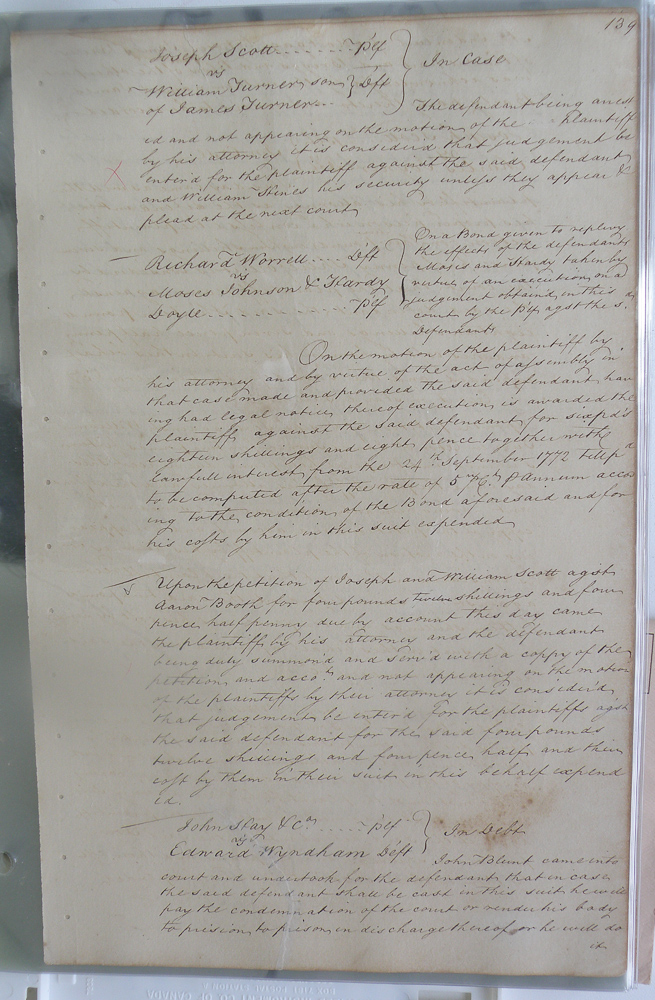 139
Joseph Scott ....... Plf
vs
William Turner son } Dft
of James Turner...
In Case
The defendant being arrest
ed and not appearing on the motion of the Plaintiff
by his attorney it is considerd that judgement be
enterd for the plaintiff against the said defendant
and William Hines his security unless they appear &
plead at the next court
Richard Worrell .... Dft
vs
Moses Johnson & Hardy
Doyle .............. Plf
On a Bond given to replevy
the effects of the defendants
Moses and Hardy taken by
virtue of an execution on a
judgement obtaind in this
court by the Plf agst the sd.
Defendants
On the motion of the plaintiff by
his attorney and by virtue of the act of assembly in
that case made and provided the said defendant hav
ing had legal notice thereof execution is awarded the
plaintiff against the said defendant for
eighteen shillings and eight pence together with
lawfull interest from the 24th September 1772 till pd
to be computed after the rate of 5 ⅌ Ct. ⅌ Annum accor
ing to the condition of the Bond aforesaid and for
his costs by him in this suit expended
Upon the petition of Joseph and William Scott agst
Aaron Booth for four pounds twelve shillings and four
pence half penny due by account this day came
the plaintiff by his attorney and the defendant
being duly summon'd and Serv'd with a coppy of the
petition and accot. and not appearing on the motion
of the plaintiffs by their attorney it is considerd
that judgement be enterd for the plaintiffs agst
the said defendant for the said four pounds
twelve shillings and four pence half and their
cost by them in their suit in this behalf expend
ed.
John Hay & Co. ...... Plf
vs
Edward Wyndham Deft
In Debt
John Blunt came into
court and undertook for the defendant that in case
the said defendant shall be cast in this suit he will
pay the condemnation of the court or render his body
to prision to prison in discharge thereof or he will do
it